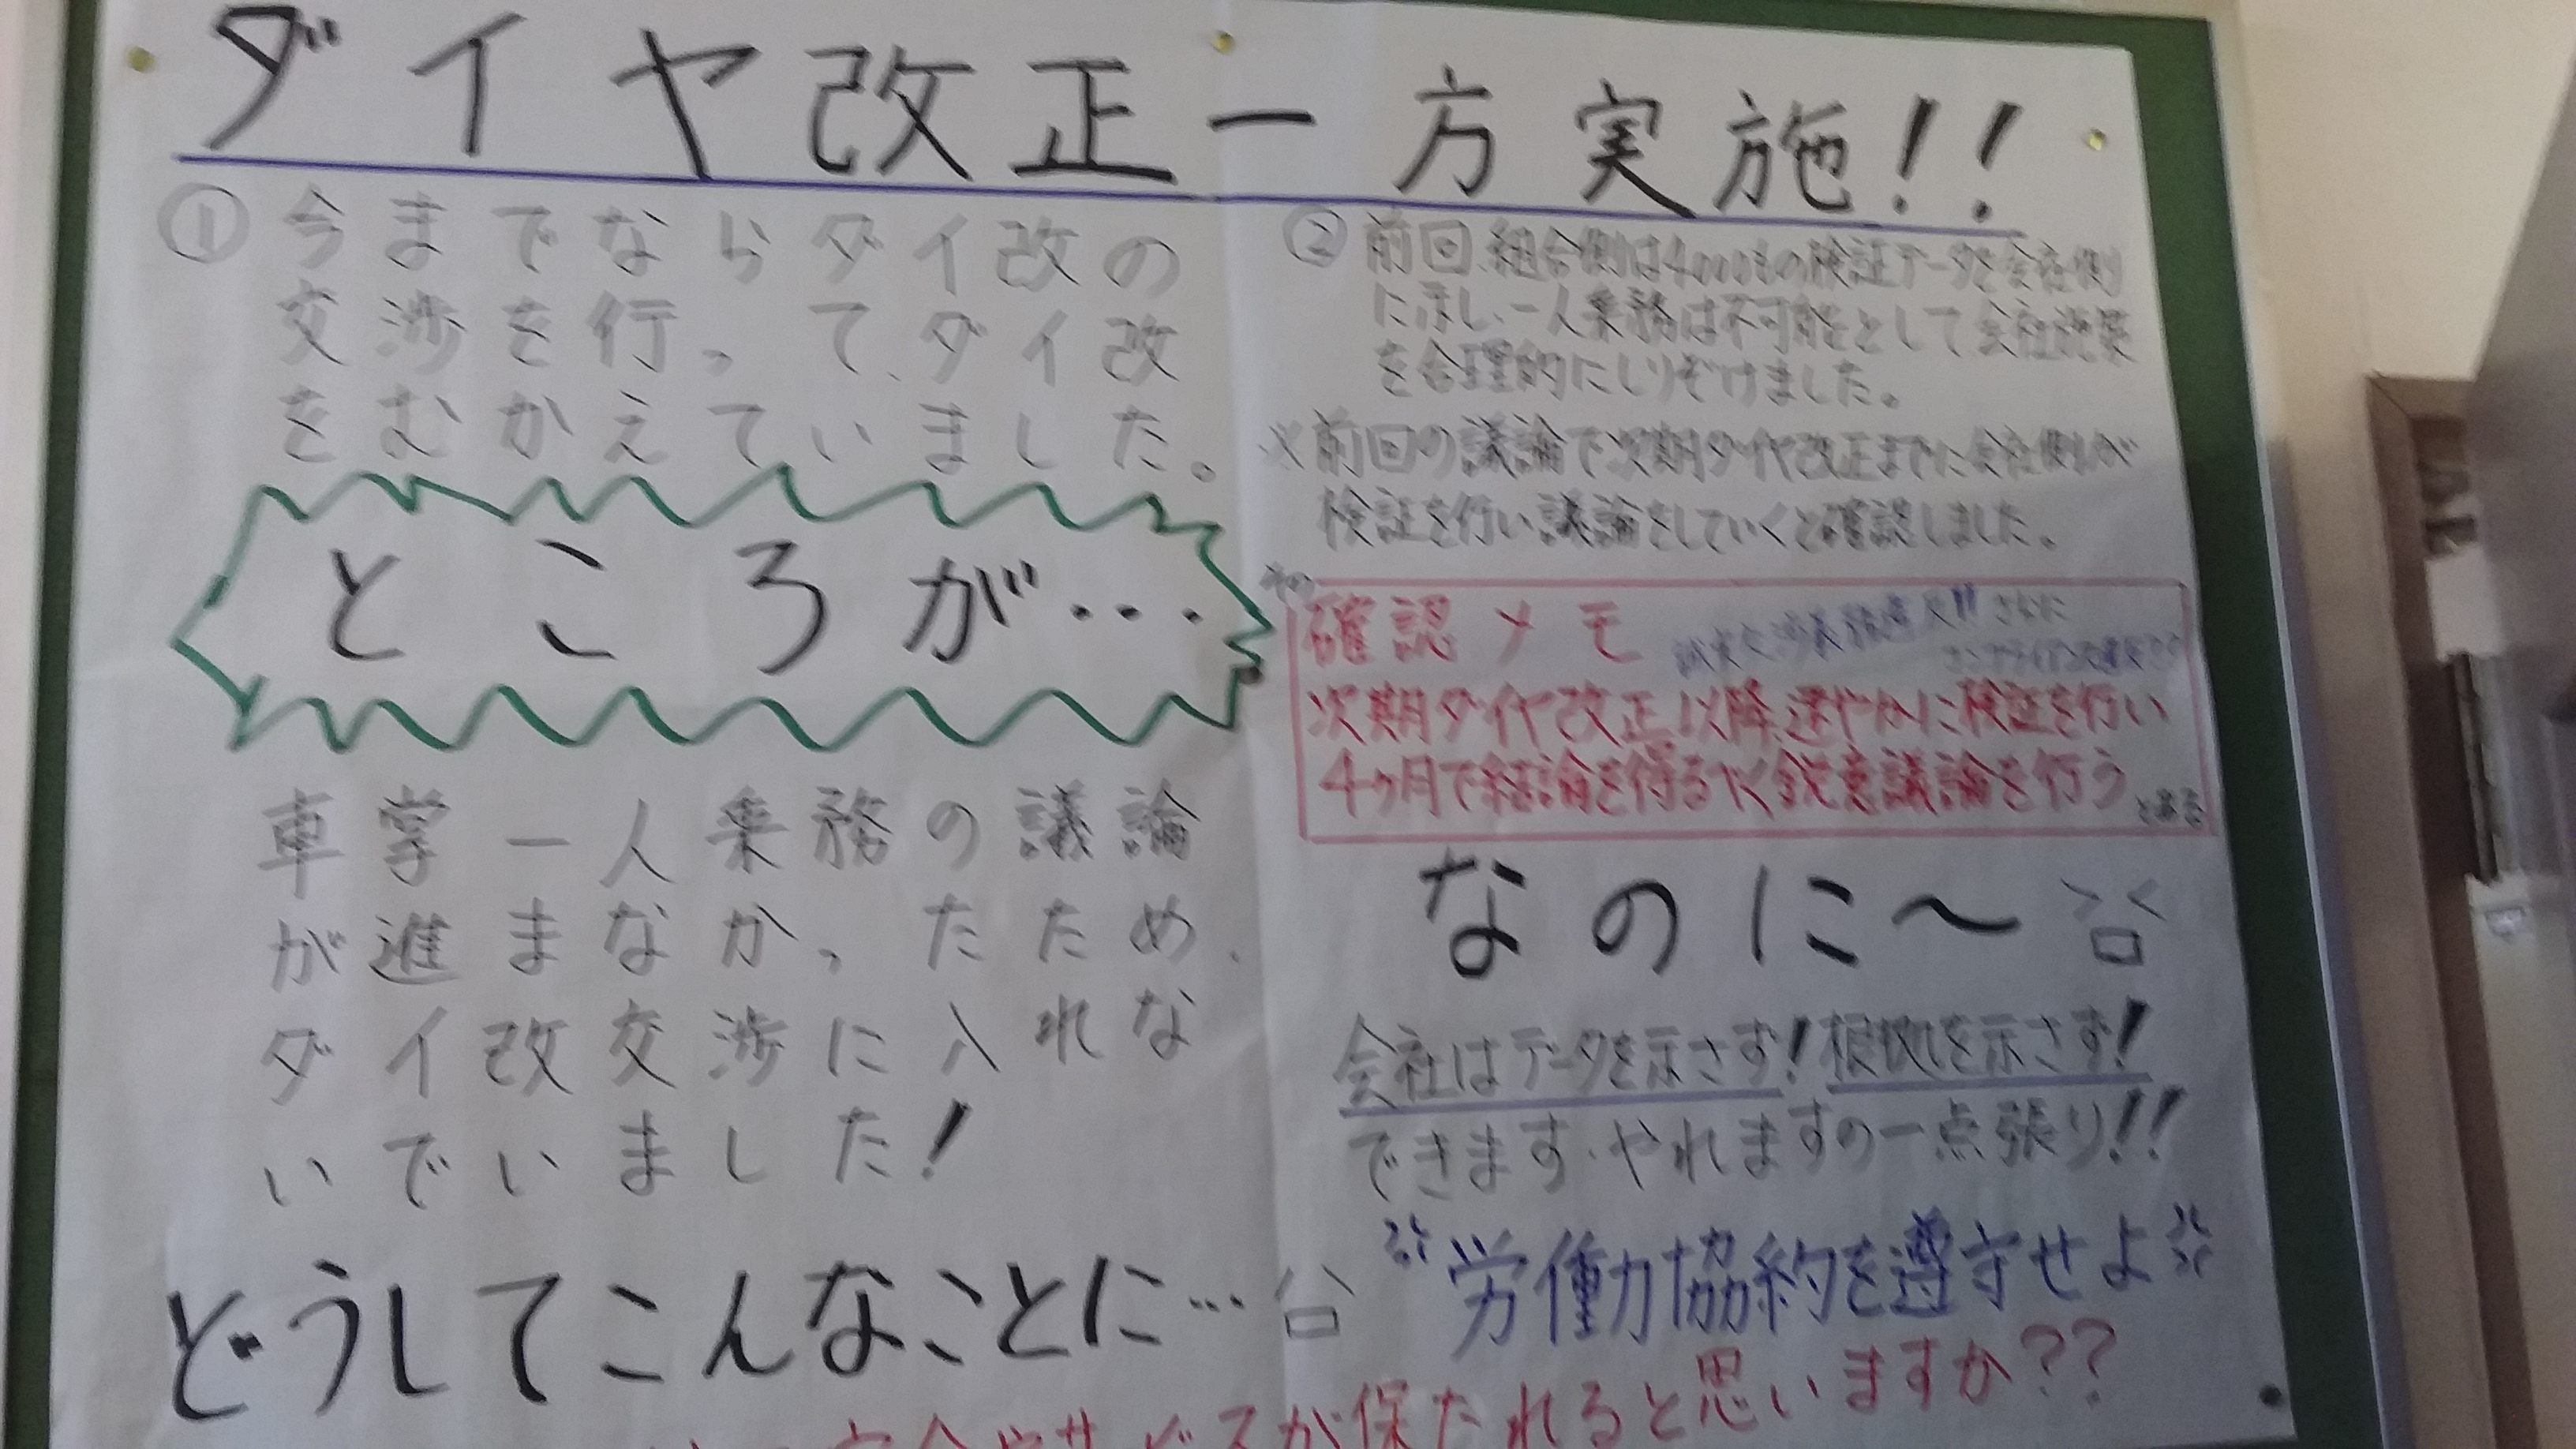 ダイヤ改正一方実施!!
① 今までならダイ改の
交渉を行って、ダイ改
をむかえていました。
ところが・・・
車掌一人乗務の議論
が進まなかったため、
ダイ改交渉に入れな
いでいました!
どうしてこんなことに…
② 前回、組合側は4000もの検証データを会社側
に示し、一人乗務は不可能として会社施策
を合理的にしりぞけました。
※前回の議論で次期ダイヤ改正までに会社側が
検証を行い議論をしていくと確認しました。
その
確認メモ
誠実交渉義務違反!! さらに
コンプライアンス違反
次期ダイヤ改正以降、速やかに検証を行い
4ヶ月で結論を得るべく鋭意議論を行う とある
なのに〜
会社はデータを示さず!根拠を示さず!
できます・やれますの一点張り!!
労働力協約を遵守せよ
安全やサービスが保たれると思いますか??